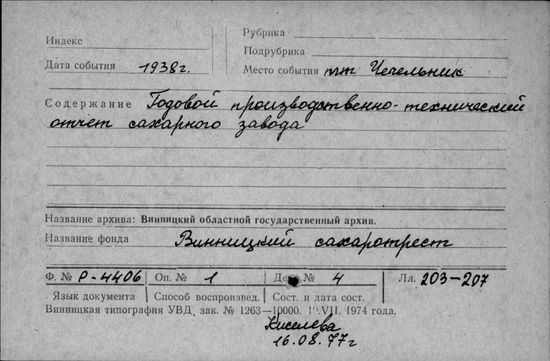 Индекс
Рубрика
Подрубрика
Дата события 1938г. Место события пгт Чечельник
Содержание Годовой производственно-технический
отчет сахарного завода
Название архива: Винницкий областной государственный архив.
Название фонда Винницкий сахаротрест
Ф. № Р-4406 Оп. № 1 Дело № 4 Лл. 203-207
Язык документа Способ воспроизвед. Сост. и дата сост.
Винницкая типография УВД, зак. № 1263—10000. VII. 1974 года.
Киселева
16.08.77г